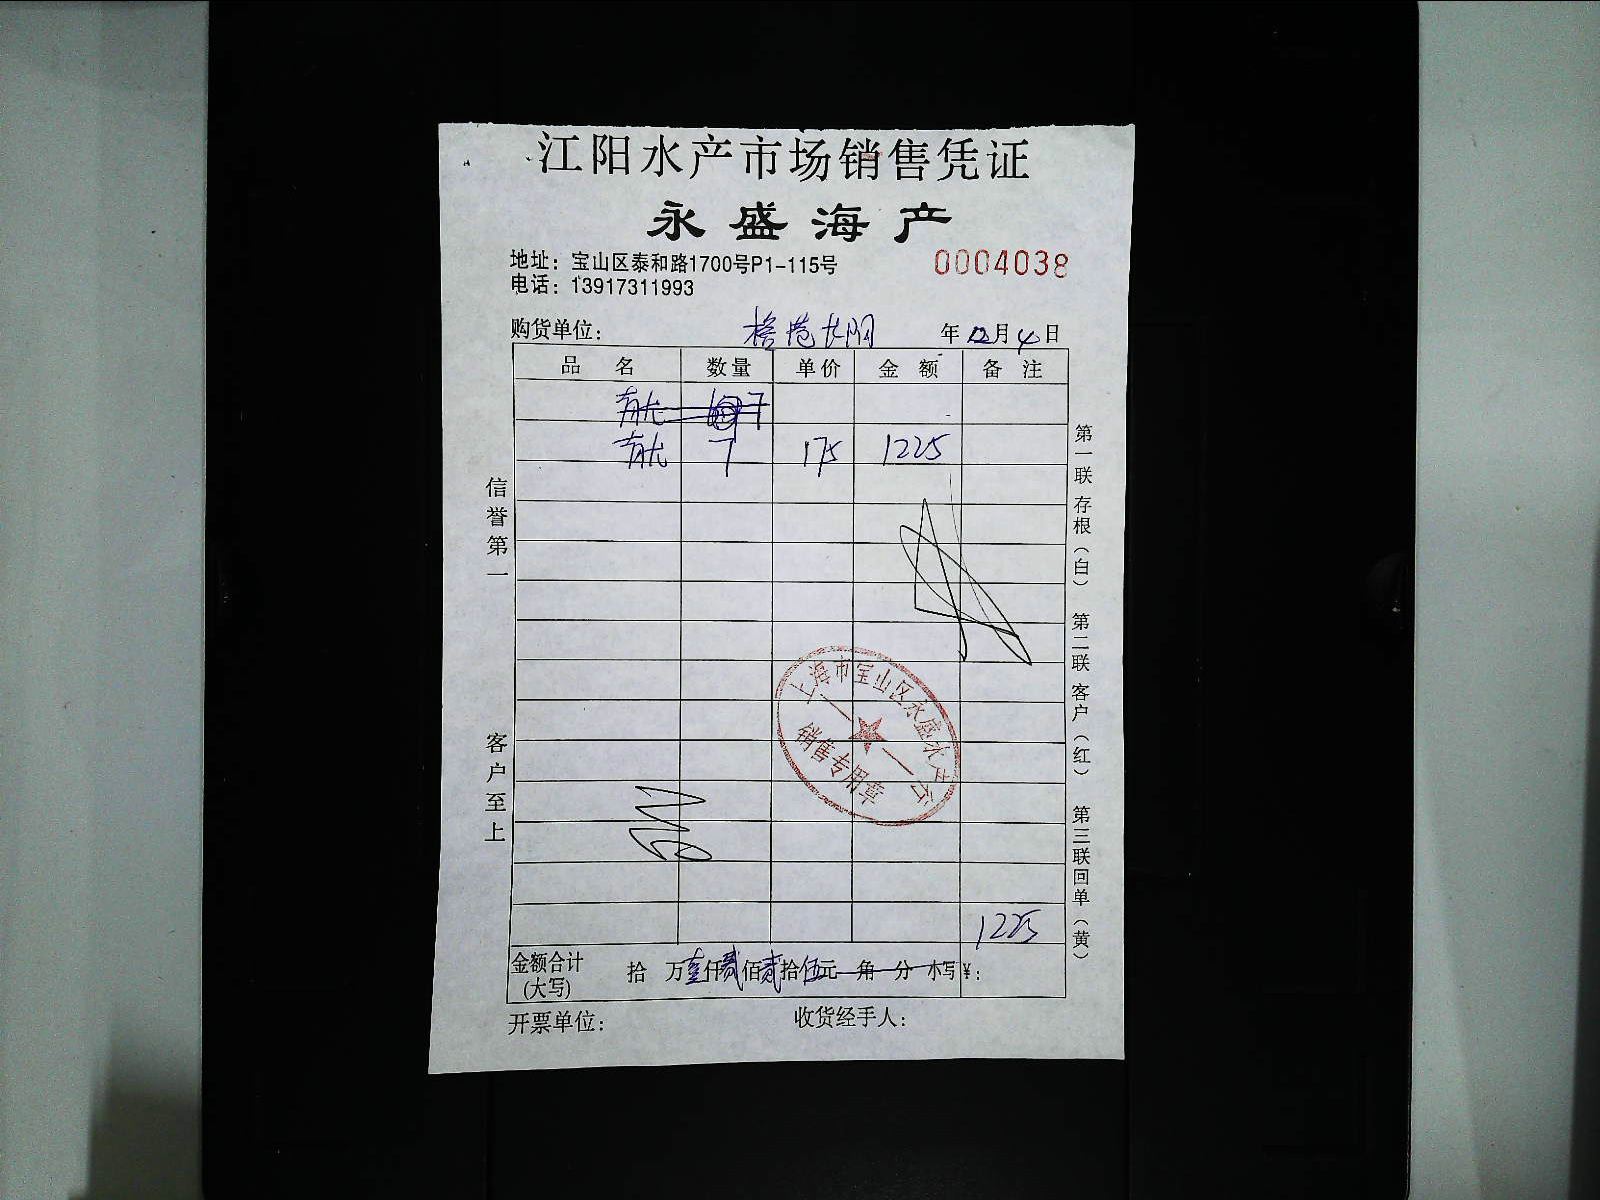 江阳水产市场销售凭证
永盛海产
地址：宝山区泰和路1700号P1-115号
0004038
电话：13917311993
购货单位：
年 12 月 4 日
品 名 数量 单价 金 额 备 注
7
7 175 1225
信誉第一
客户至上
第一联 存根（白） 第二联 客户（红） 第三联回单（黄）
上海市宝山区永盛水产行
销售专用章
1225
金额合计 拾 万壹仟贰佰贰拾伍元 角 分 小写¥：
(大写)
开票单位： 收货经手人：